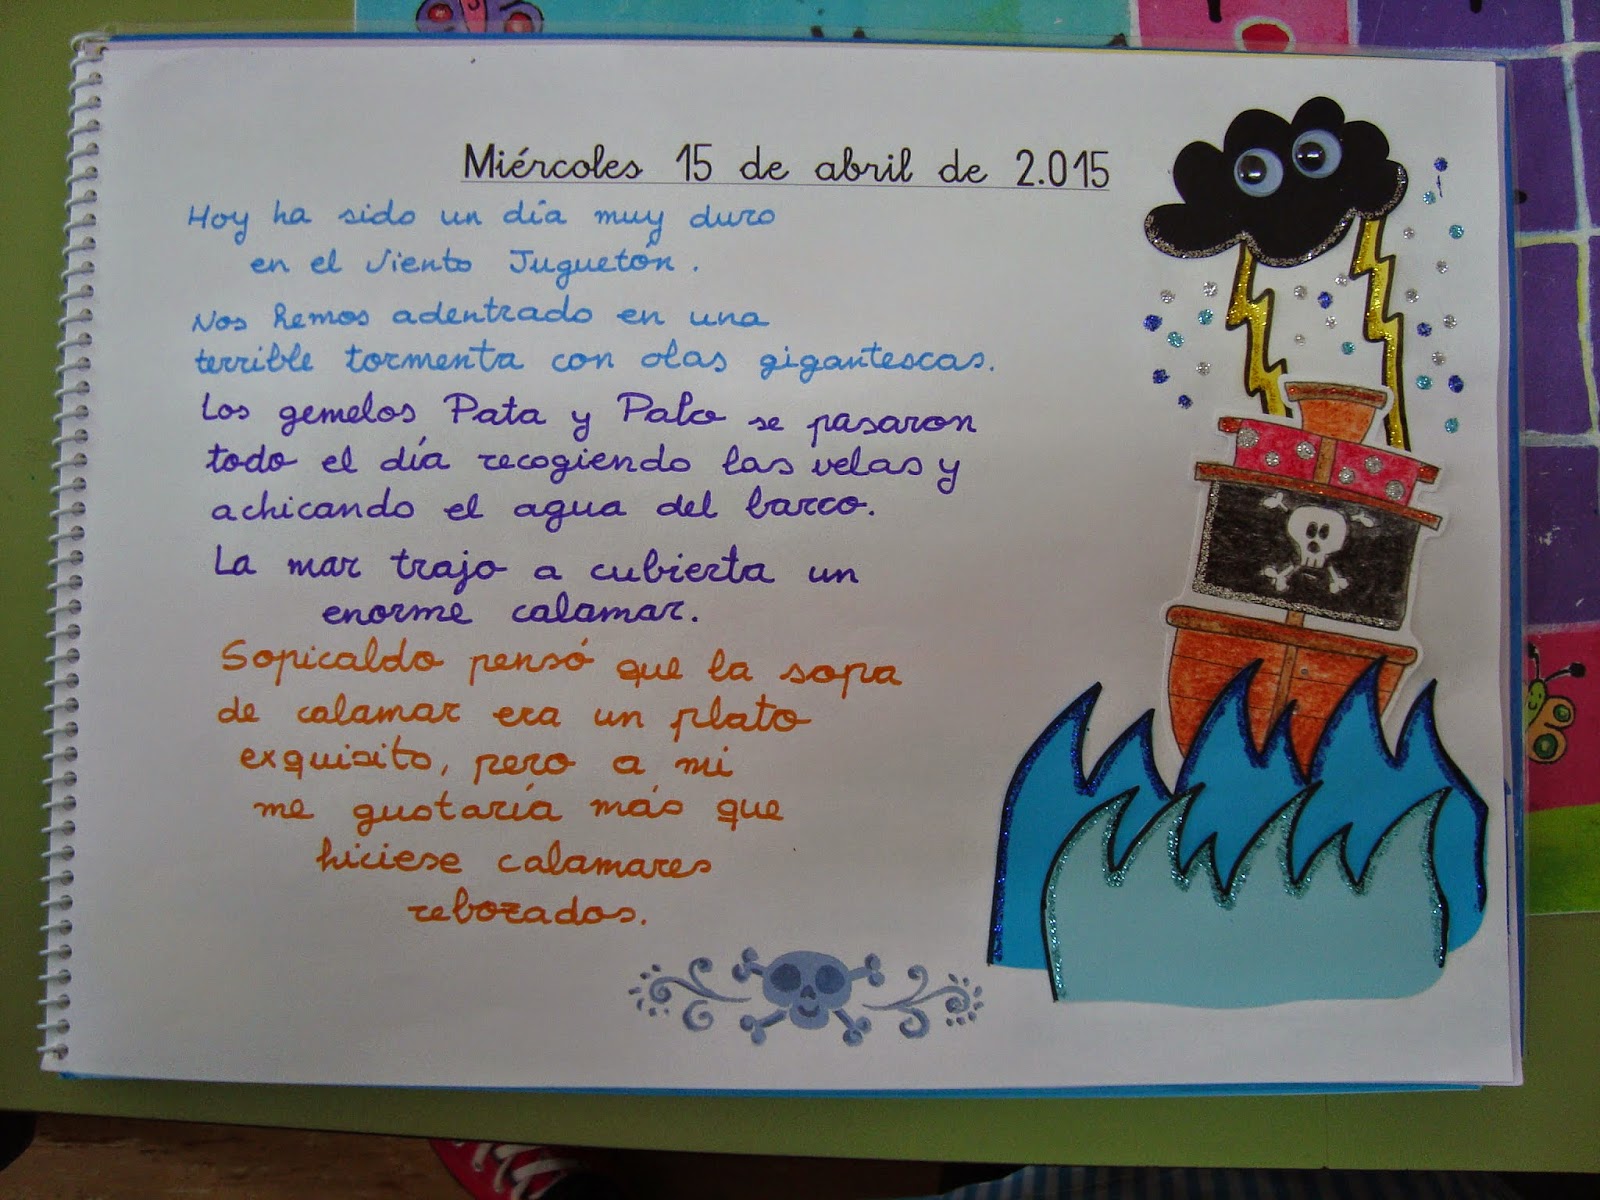 Miércoles 15 de abril de 2.015
Hoy ha sido un día muy duro
en el Viento Juguetón.
Nos hemos adentrado en una
terrible tormenta con olas gigantescas.
Los gemelos Pata y Palo se pasaron
todo el día recogiendo las velas y
achicando el agua del barco.
La mar trajo a cubierta un
enorme calamar.
Sopicaldo pensó que la sopa
de calamar era un plato
exquisito, pero a mi
me gustaría más que
hiciese calamares
rebozados.